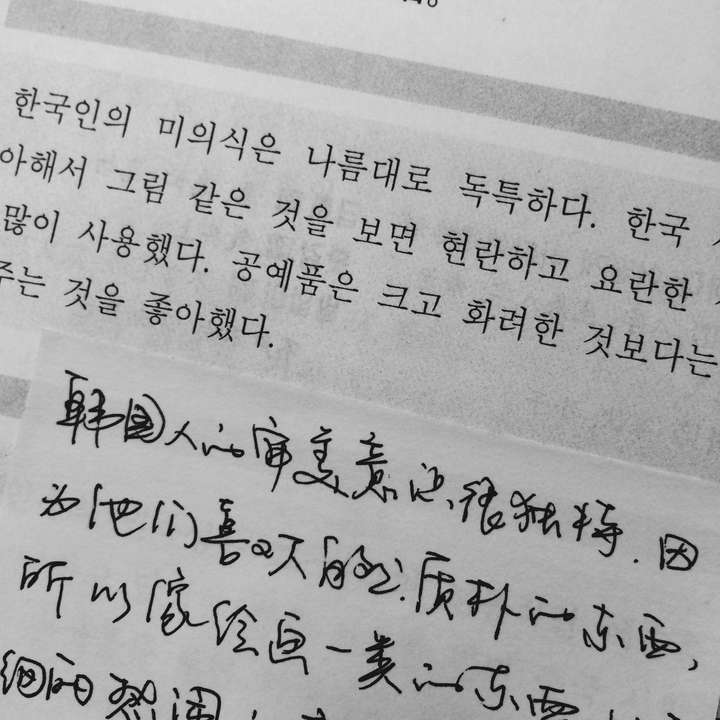 한국인의 미의식은 나름대로 독특하다. 한국
아해서 그림 같은 것을 보면 현란하고 요란한
많이 사용했다. 공예품은 크고 화려한 것보다는
주는 것을 좋아했다.
韩国人的审美意识很独特.因
为他们喜欢天然.质朴的东西,
所以像绘画一类的东西